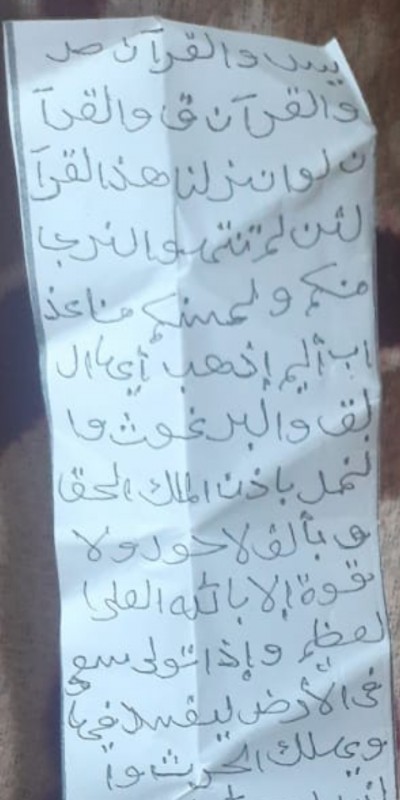 يس والقرآن صد
والقرآن ق والقرآ
ن لو انزلنا هذالقرآ
لئن لم تنتهو النرجـ
منكم وليمسنكم مناعذ
اب أليم إذهب أيها ال
بق والبرغوث وا
لنمل باذن الملك الحق
و بألف لاحودولا
قوة إلا بالله العلي ا
لعظيم وإذا تولى سعى
في الأرض ليفسد فيها
ويهلك الحرث وا